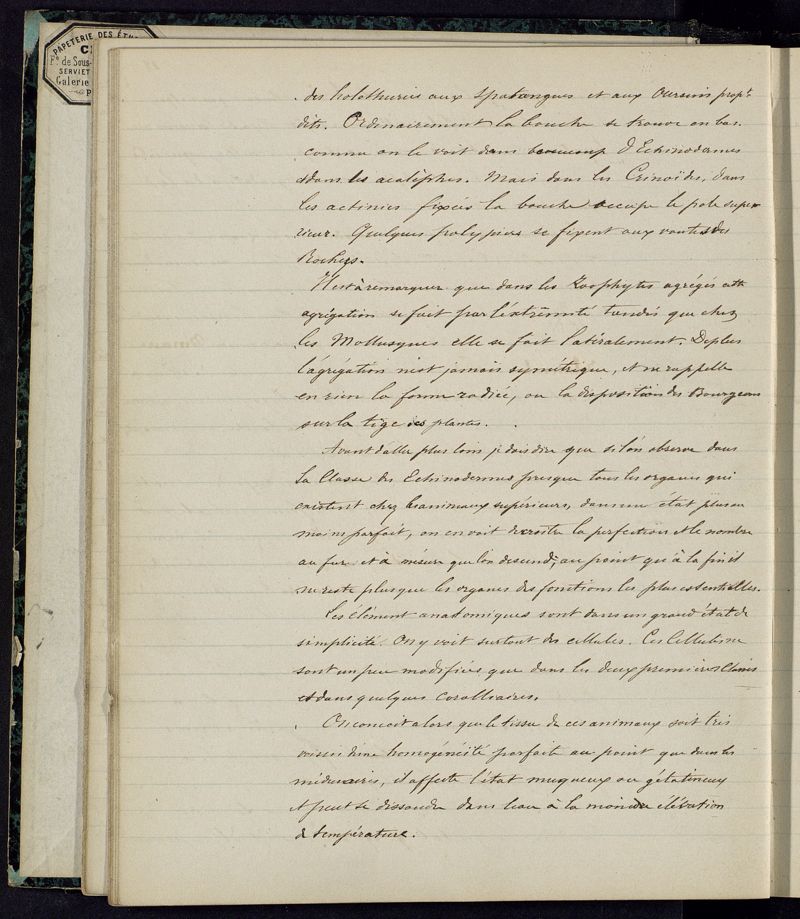 PAPETERIE DES ÉTU
F.e de Sous-
SERVIET
Galerie
des holothuries aux Spatangues et aux Oursins prop.t
dits. Ordinairement la bouche se trouve en bas
comme on le voit dans beaucoup d'Echinodermes
et dans les acalèphes. Mais dans les Crinoïdes, dans
les actinies fixées la bouche occupe le pole supé
rieur. Quelques polypiers se fixent aux voutes des
Rochers.
Il est à remarquer que dans les Zoophytes agrégés cette
agrégation se fait par l'éxtrêmité tandis que chez
les Mollusques elle se fait latéralement. De plus
l'agrégation n'est jamais symétrique, et ne rappelle
en rien la forme radiée, ou la disposition des Bourgeons
sur la tige des plantes.
Avant d'aller plus loin je dois dire que si l'on observe dans
la Classe des Echinodermes presque tous les organes qui
existent chez les animaux supérieurs, dans un état plus ou
moins parfait, on en voit decroitre la perfection et le nombre
au fur et à mésure que l'on descend, au point qu'à la fin il
ne reste plus que les organes des fonctions les plus essentielles.
Les élément anatomiques sont dans un grand état de
simplicité. On y voit surtout des cellules. Ces Cellules ne
sont un peu modifiées que dans les deux premières Classes
et dans quelques coralliaires.
On conçoit alors que le tissu de ces animaux soit très
voisin d'une homogénéité parfaite au point que dans les
méduaires, il affecte l'état muqueux ou gélatineux
et peut se dissoudre dans l'eau à la moindre élévation
de température.